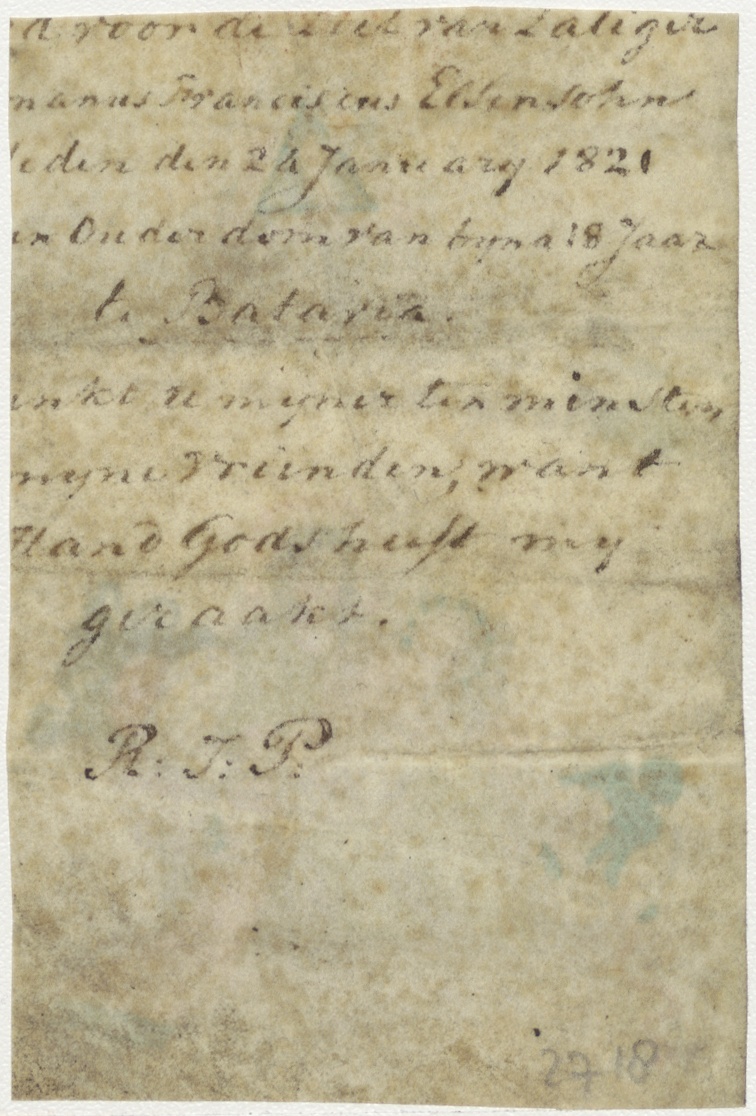 d voor de Siel van Zaliger
manus Franciscus Elsensohn
leden den 26 January 1821
en Ouderdom van byna 18 Jaar
te Batavia.
enkt u myner ten minsten
myne Vrienden, want
Hand Gods heeft my
geraakt.
R: I: P:
2718